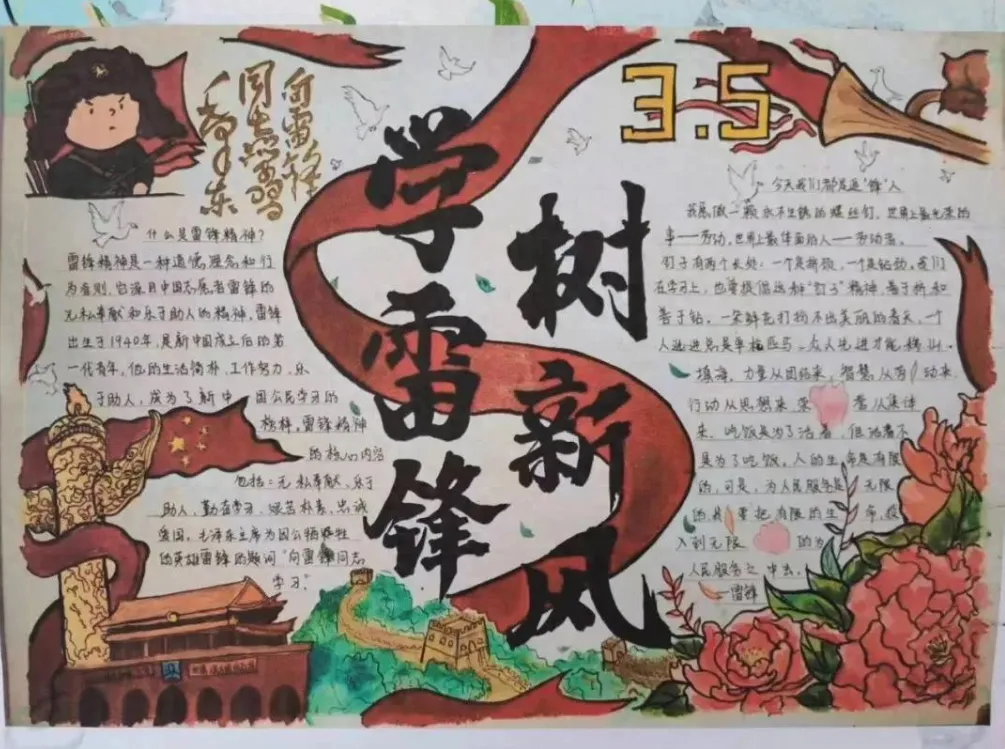 向雷锋
同志学习
毛泽东
3.5
学雷锋
树新风
什么是雷锋精神?
雷锋精神是一种道德理念和行
为准则,它源自中国志愿者雷锋的
无私奉献和乐于助人的精神。雷锋
出生于1940年,是新中国成立后的第
一代青年,他的生活简朴,工作努力,乐
于助人,成为了新中 国公民学习的
榜样。雷锋精神
的核心内容
包括:无私奉献、乐于
助人、勤奋学习、艰苦朴素、忠诚
爱国,毛泽东主席为因公牺牲
的英雄雷锋的题词“向雷锋同志
学习”
今天我们都是追“锋”人
我愿做一颗永不生锈的螺丝钉。世界上最光荣的
事——劳动。世界上最体面的人——劳动者。
钉子有两个长处:一个是挤劲,一个是钻劲。我们
在学习上,也要提倡这种“钉子”精神,善于挤和
善于钻。一朵鲜花打扮不出美丽的春天,一个
人先进总是单枪匹马,众人先进才能移山
填海。力量从团结来,智慧从劳 动来,
行动从思想来,荣 着从集体
来。吃饭是为了活着,但活着不
是为了吃饭。人的生命是有限
的,可是,为人民服务是 无限
的,我要把有限的生 命,投
入到无限 的为
人民服务之 中去。
一雷锋